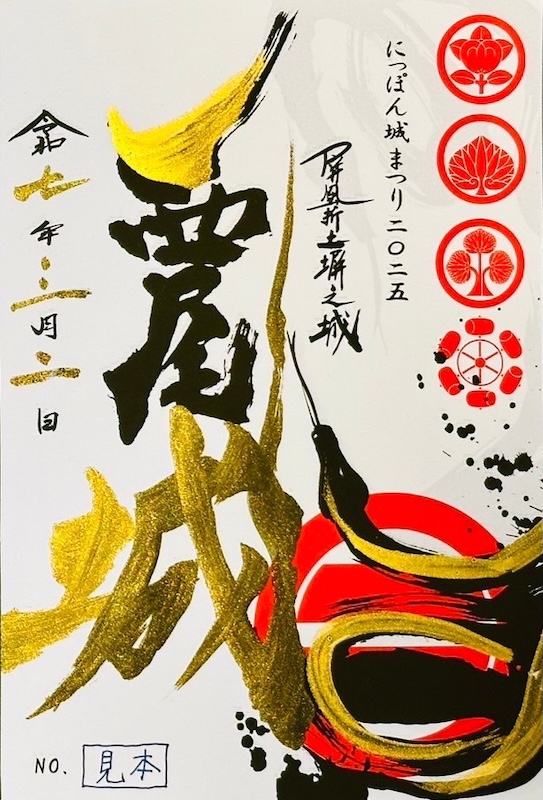 にっぽん城まつり二〇二五
屏風折土塀之城
西尾城
令和七年三月二日
NO. 見本